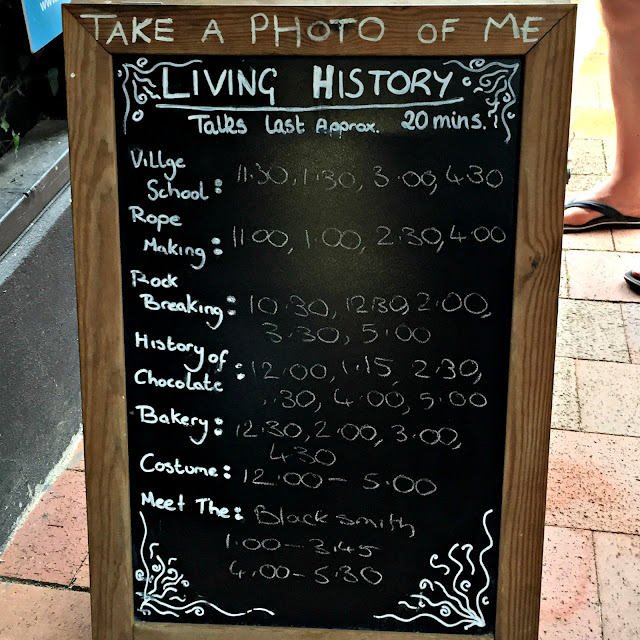 www.
TAKE A PHOTO OF ME
LIVING HISTORY
Talks Last Approx. 20 mins.
Villge
School: 11.30, 1.30, 3.00, 4.30
Rope
Making: 11.00, 1.00, 2.30, 4.00
Rock
Breaking: 10.30, 12.30, 2.00,
3.30, 5.00
History of
Chocolate : 12.00, 1.15, 2.30,
.30, 4.00, 5.00
Bakery: 12.30, 2.00, 3.00,
4.30
Costume: 12.00 - 5.00
Meet The: Blacksmith
1.00 - 3.45
4.00 - 5.30